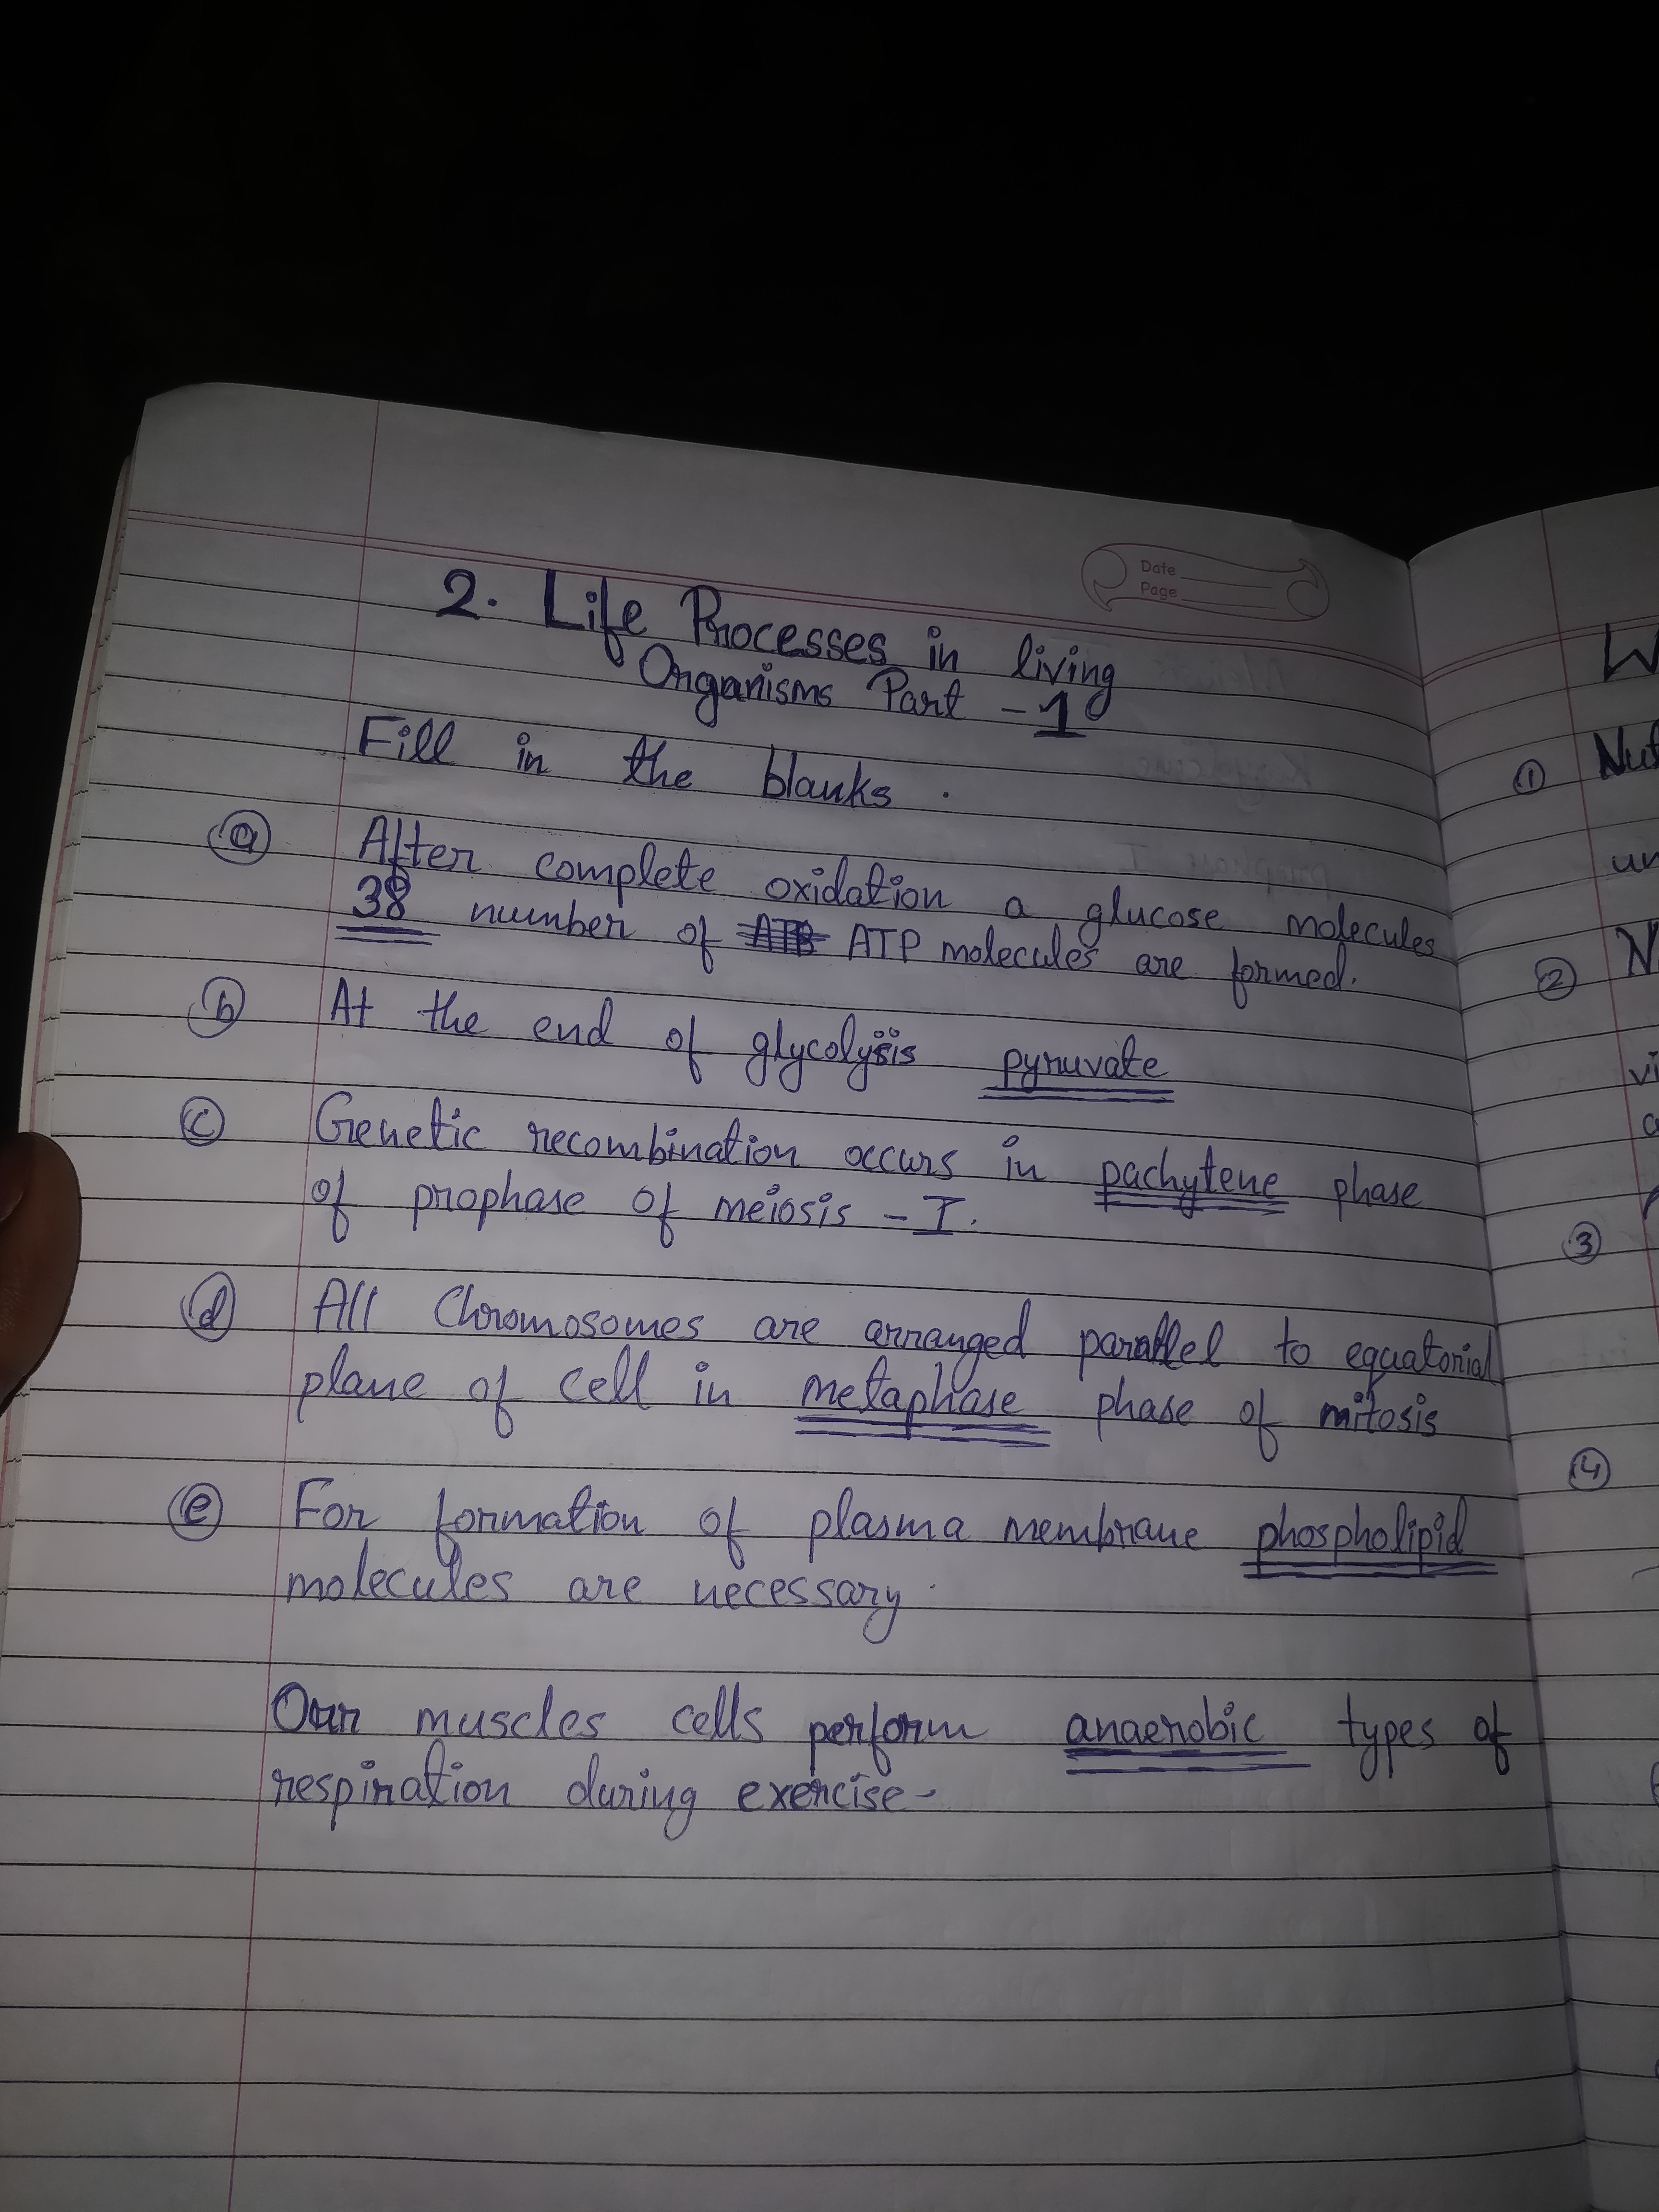 Date
Page
2. Life Processes in living
Organisms Part - 1
Fill in the blanks.
(a) After complete oxidation a glucose molecules
38 number of ATP molecules are formed.
(b) At the end of glycolysis pyruvate
(c) Genetic recombination occurs in pachytene phase
of prophase of meiosis - I.
(d) All Chromosomes are arranged parallel to equatorial
plane of cell in metaphase phase of mitosis
(e) For formation of plasma membrane phospholipid
molecules are necessary.
Our muscles cells perform anaerobic types of
respiration during exercise-
①
②
③
④